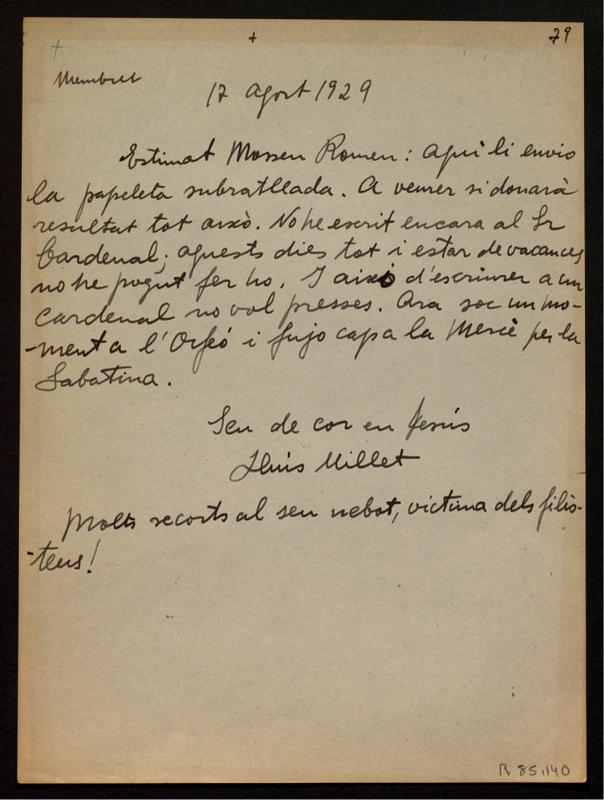 + + 79
Membret
17 agost 1929
Estimat Mossen Romeu: Aquí li envio
la papeleta subratllada. A veurer si donarà
resultat tot això. No he escrit encara al Sr
Cardenal; aquests dies tot i estar de vacances
no he pogut fer ho. I això d'escriurer a un
Cardenal no vol presses. Ara soc un mo-
-ment a l'Orfeó i fujo cap a la Mercè per la
Sabatina.
Seu de cor en Jesús
Lluís Millet
Molts recorts al seu nebot, víctima dels filis-
-teus!
R. 85.140